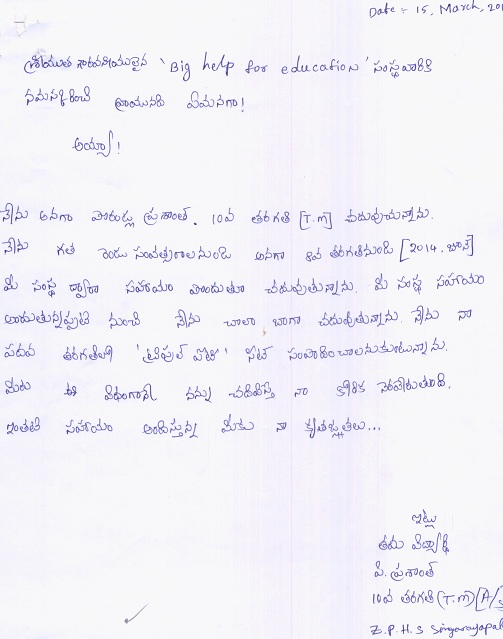 Date :- 15, March, 201
శ్రీయుత గౌరవనీయులైన 'Big help for education' సంస్థవారికి
నమస్కరించి వ్రాయునది ఏమనగా!
అయ్యా!
నేను అనగా పోకుల్లు ప్రశాంత్. 10వ తరగతి [T.M] చదువుచున్నాను.
నేను గత రెండు సంవత్సరాలనుండి అనగా 8వ తరగతినుండి [2014. జూన్]
మీ సంస్థ ద్వారా సహాయం పొందుతూ చదువుతున్నాను. మీ సంస్థ సహాయం
అందుతున్నప్పటి నుంచి నేను చాలా బాగా చదువుతున్నాను. నేను నా
పదవ తరగతిలో 'ట్రిపుల్ ఐటి' సీట్ సంపాదించాలనుకుంటున్నాను.
మీరు ఈ విధంగానే నన్ను చదివిస్తే నా కోరిక నెరవేరుతుంది.
ఇంతటి సహాయం అందిస్తున్న మీకు నా కృతజ్ఞతలు...
ఇట్లు
తమ విద్యార్థి
పి. ప్రశాంత్
10వ తరగతి (T.M) [A/s
Z.P.H.S Singarayapal